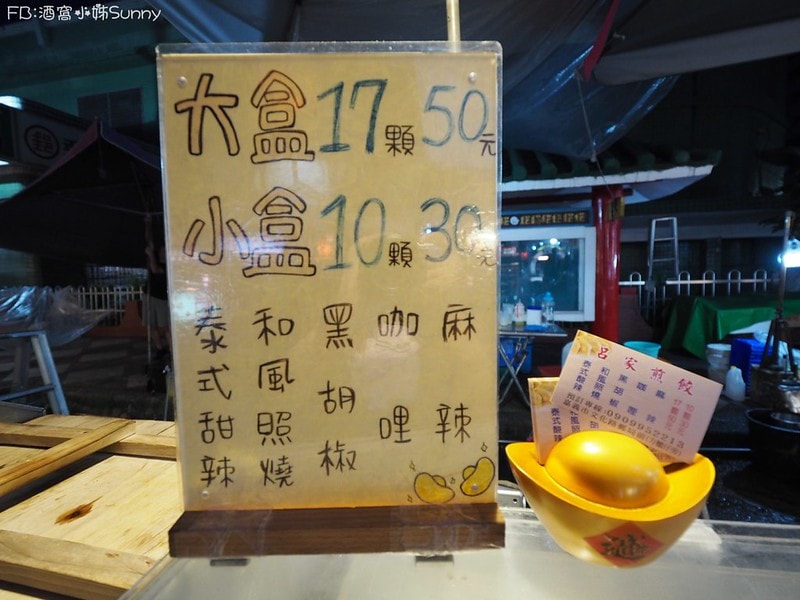 FB:酒窩小姊Sunny
大盒17顆50元
小盒10顆30元
泰式甜辣
和風照燒
黑胡椒
咖哩
麻辣
呂家煎餃
泰式酸辣
和風照燒
黑胡椒
咖哩
麻辣
預訂專線:0909952213